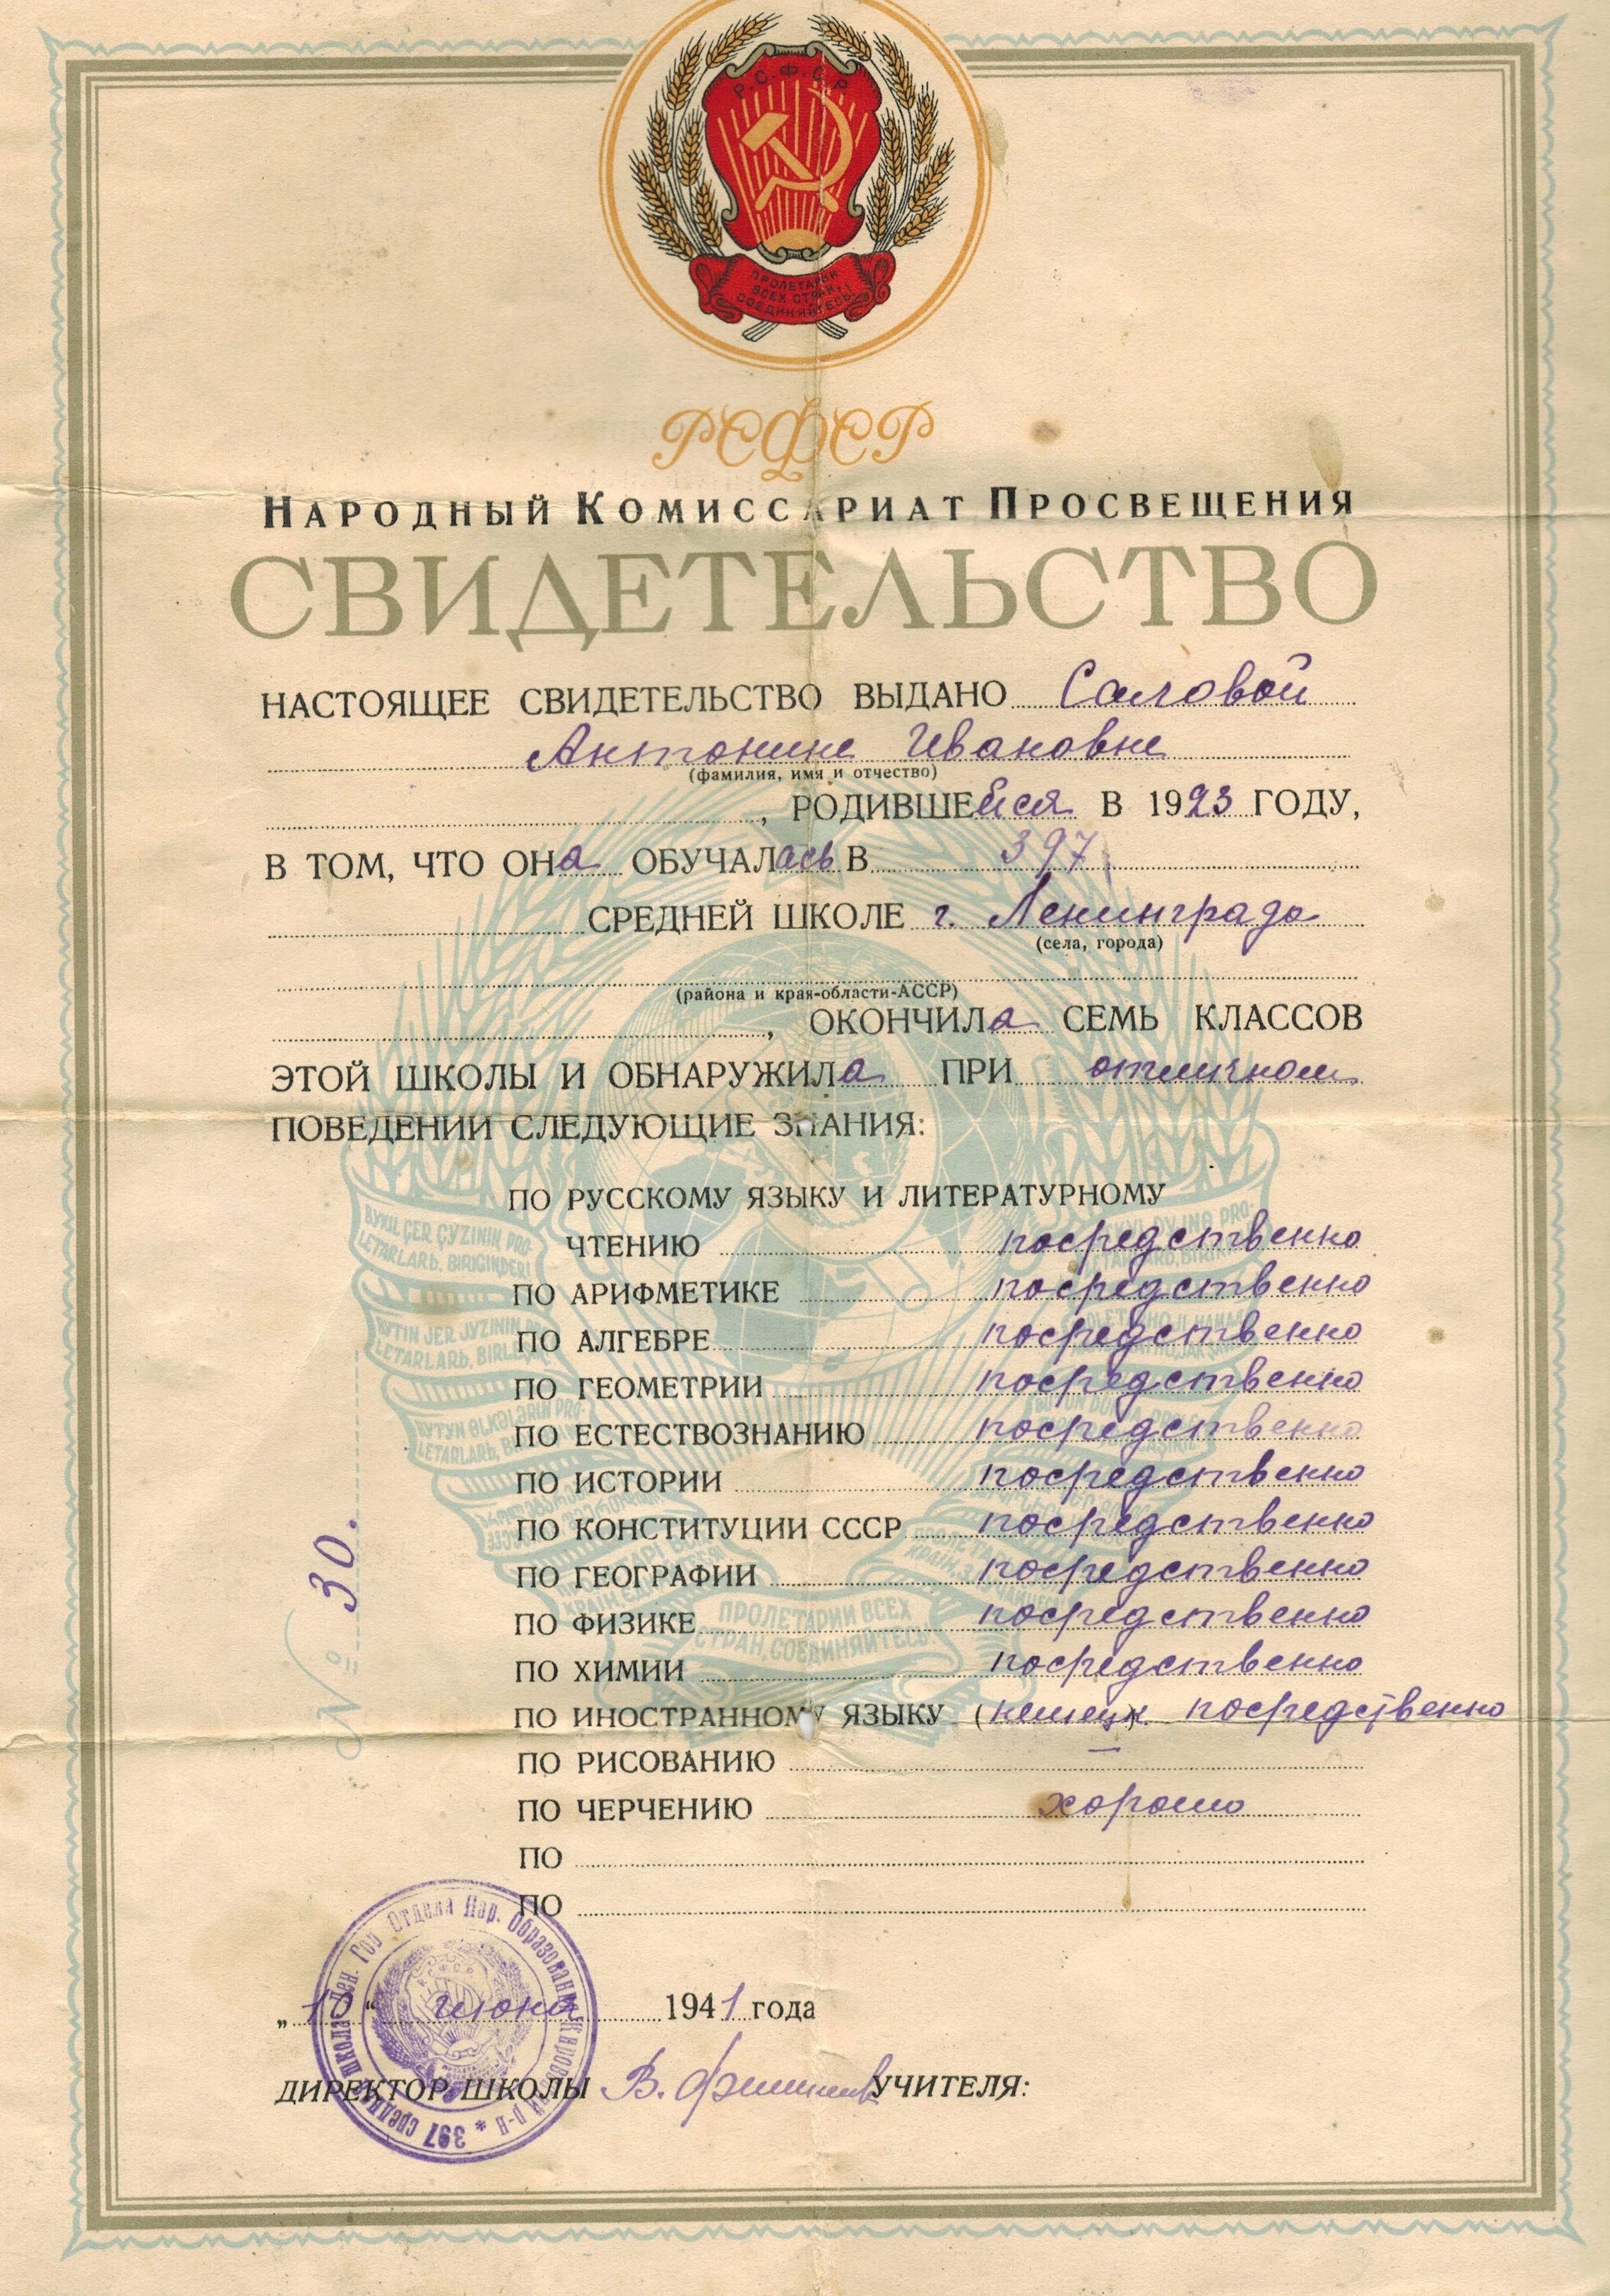 Р.С.Ф.С.Р.
ПРОЛЕТАРИИ
ВСЕХ СТРАН,
СОЕДИНЯЙТЕСЬ!
РСФСР
НАРОДНЫЙ КОМИССАРИАТ ПРОСВЕЩЕНИЯ
СВИДЕТЕЛЬСТВО
НАСТОЯЩЕЕ СВИДЕТЕЛЬСТВО ВЫДАНО Саловой
Антонине Ивановне
(фамилия, имя и отчество)
, РОДИВШЕйся В 1923 ГОДУ,
В ТОМ, ЧТО ОНа ОБУЧАЛась В 397
СРЕДНЕЙ ШКОЛЕ г. Ленинграда
(села, города)
(района и края-области-АССР)
, ОКОНЧИЛа СЕМЬ КЛАССОВ
ЭТОЙ ШКОЛЫ И ОБНАРУЖИЛа ПРИ отличном
ПОВЕДЕНИИ СЛЕДУЮЩИЕ ЗНАНИЯ:
ПО РУССКОМУ ЯЗЫКУ И ЛИТЕРАТУРНОМУ
ЧТЕНИЮ посредственно
ПО АРИФМЕТИКЕ посредственно
ПО АЛГЕБРЕ посредственно
ПО ГЕОМЕТРИИ посредственно
ПО ЕСТЕСТВОЗНАНИЮ посредственно
ПО ИСТОРИИ посредственно
ПО КОНСТИТУЦИИ СССР посредственно
ПО ГЕОГРАФИИ посредственно
ПО ФИЗИКЕ посредственно
ПО ХИМИИ посредственно
ПО ИНОСТРАННОМУ ЯЗЫКУ (немецк.) посредственно
ПО РИСОВАНИЮ —
ПО ЧЕРЧЕНИЮ хорошо
ПО
ПО
№ 30.
BYKIL ÇER ÇYZININ PRO-
LETARLARЬ, BIRIGINDER!
BYTIN JER JYZININ
LETARLARЬ, BIRLE
BYTYN ØLKƏLƏRIN PRO-
LETARLARЬ,
ПРОЛЕТАРИИ ВСЕХ
СТРАН, СОЕДИНЯЙТЕСЬ!
„10“ июня 1941 года
ДИРЕКТОР ШКОЛЫ В. УЧИТЕЛЯ:
Лен. Гор Отдела Нар. Образования Кировский р-н * 397 средняя школа